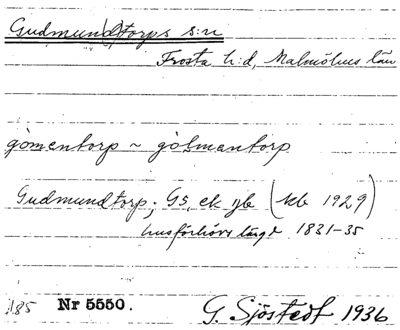 Gudmun(d)torps s:n
Frosta h:d, Malmöhus län
gòmentorp ~ gòlmantorp
Gudmundtorp; GS, ek jb (kb 1929)
husförhörslängd 1831-35
185 Nr 5550. G. Sjöstedt 1936